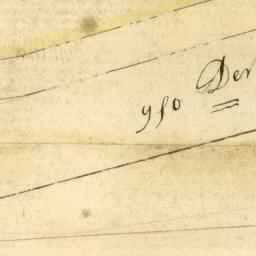 950 Der